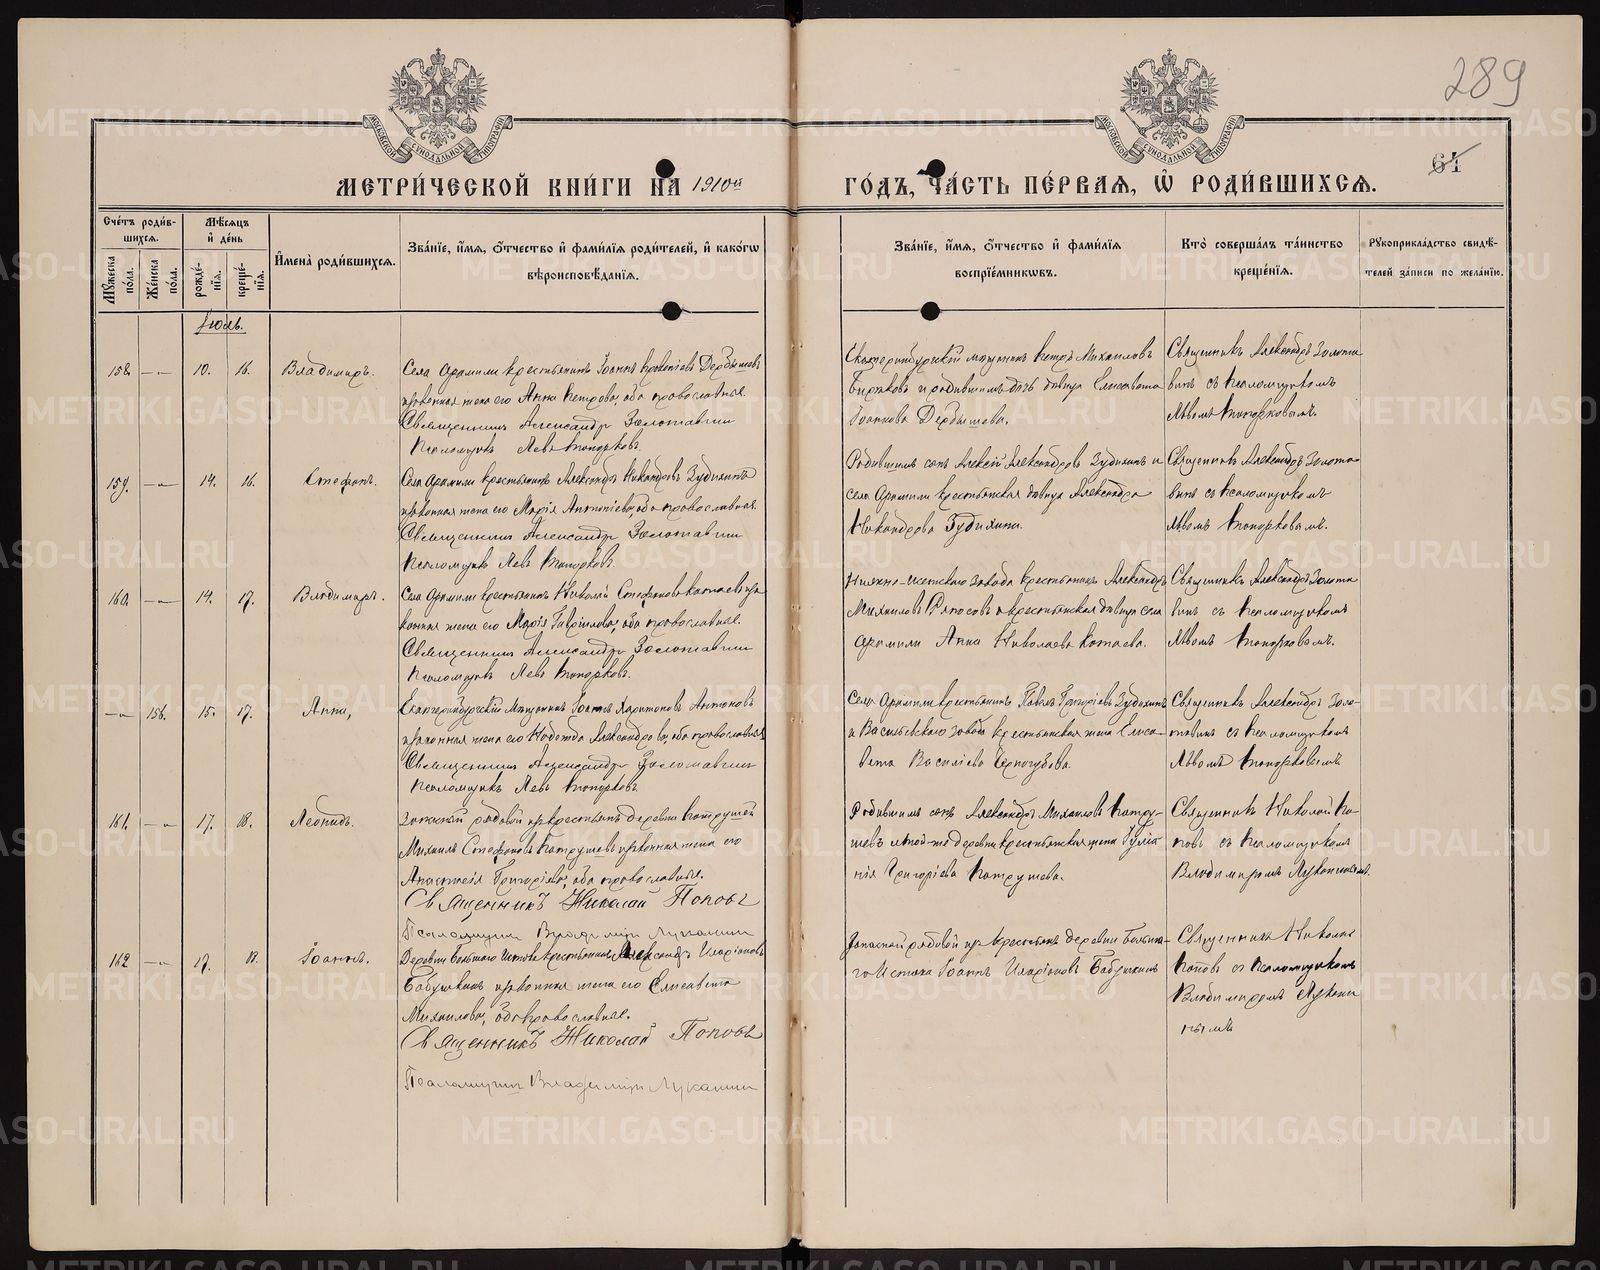 289
64
МОСКОВСКОЙ СѴНОДАЛЬНОЙ ТИПОГРАФІИ
МОСКОВСКОЙ СѴНОДАЛЬНОЙ ТИПОГРАФІИ
МЕТРИ́ЧЕСКОЙ КНИ́ГИ НА 1910й
ГО́ДЪ, ЧА́СТЬ ПЕ́РВАЯ, Ѡ҆ РОДИ́ВШИХСЯ.
Сче́тъ роди́в-
шихся.
Мꙋжеска по́ла.
Же́нска по́ла.
Мѣ́сяцъ
и҆ де́нь
рожде́-
нїя.
креще́-
нїя.
И҆мена̀ роди́вшихся.
Зва́нїе, и҆́мя, ѻ҆́тчество и҆ фами́лїя роди́телей, и҆ како́гѡ
вѣроисповѣ́данїя.
Зва́нїе, и҆́мя, ѻ҆́тчество и҆ фами́лїя
воспрїе́мникѡвъ.
Кто̀ соверша́лъ та́инство
креще́нїя.
Рꙋкоприкла́дство свидѣ́-
телей за́писи по жела́нїю.
Іюль.
158. — 10. 16. Владимиръ.
Села Арамили крестьянинъ Іоаннъ Дербышевъ
законная жена его Анна Петрова, оба православные.
Священникъ Александръ Золотавинъ
Псаломщикъ Левъ Топорковъ.
Екатеринбургскій мѣщанинъ Петръ Михаиловъ
и родившимъ дочь дѣвица Елисавета
Іоаннова Дербышева.
Священникъ Александръ Золота-
винъ съ псаломщикомъ
Львомъ Топорковымъ.
159. — 14. 16. Стефанъ.
Села Арамили крестьянинъ Александръ Никандровъ Зудихинъ
законная жена его Марія Антоніева, оба православные.
Священникъ Александръ Золотавинъ
Псаломщикъ Левъ Топорковъ.
Родившимъ сынъ Алексій Александровъ Зудихинъ и
села Арамили крестьянская дѣвица Александра
Никандрова Зудихина.
Священникъ Александръ Золота-
винъ съ псаломщикомъ
Львомъ Топорковымъ.
160. — 14. 17. Владимиръ.
Села Арамили крестьянинъ Николай Стефановъ Котаевъ за-
конная жена его Марія Гавріилова, оба православные.
Священникъ Александръ Золотавинъ
Псаломщикъ Левъ Топорковъ.
Нижне-Исетскаго завода крестьянинъ Александръ
Михаиловъ Ряпосовъ и крестьянская дѣвица села
Арамили Анна Николаева Котаева.
Священникъ Александръ Золота
винъ съ псаломщикомъ
Львомъ Топорковымъ.
— 156. 15. 17. Анна,
Екатеринбургскій мѣщанинъ Іоаннъ Харитоновъ Антоновъ
законная жена его Надежда Александрова, оба православные
Священникъ Александръ Золотавинъ
Псаломщикъ Левъ Топорковъ
Села Арамили крестьянинъ Павелъ Григоріевъ Зудихинъ
и Васильевскаго завода крестьянская жена Елиса-
вета Василіева Черногубова.
Священникъ Александръ Золо-
тавинъ съ псаломщикомъ
Львомъ Топорковымъ
161. — 17. 18. Леонидъ.
Запасный рядовой изъ крестьянъ деревни Патрушей
Михаилъ Стефановъ Патрушевъ законная жена его
Анастасія Григоріева, оба православные.
Священникъ Николай Поповъ
Псаломщикъ Владиміръ Луканинъ
Родившимъ сынъ Александръ Михаиловъ Патру-
шевъ и той-же деревни крестьянская жена Іуліа-
нія Григоріева Патрушева.
Священникъ Николай По-
повъ съ псаломщикомъ
Владимиромъ Луканинымъ.
162 — 17. 18. Іоаннъ.
Деревни Большаго Истока крестьянинъ Александръ Иларіоновъ
Бабушкинъ законная жена его Елисавета
Михаилова, оба православные.
Священникъ Николай Поповъ
Псаломщикъ Владиміръ Луканинъ
Запасной рядовой изъ крестьянъ деревни Больша-
го Истока Іоаннъ Иларіоновъ Бабушкинъ
Священникъ Николай
Поповъ съ псаломщикомъ
Владимиромъ Лукани
нымъ
METRIKI.GASO-URAL.RU